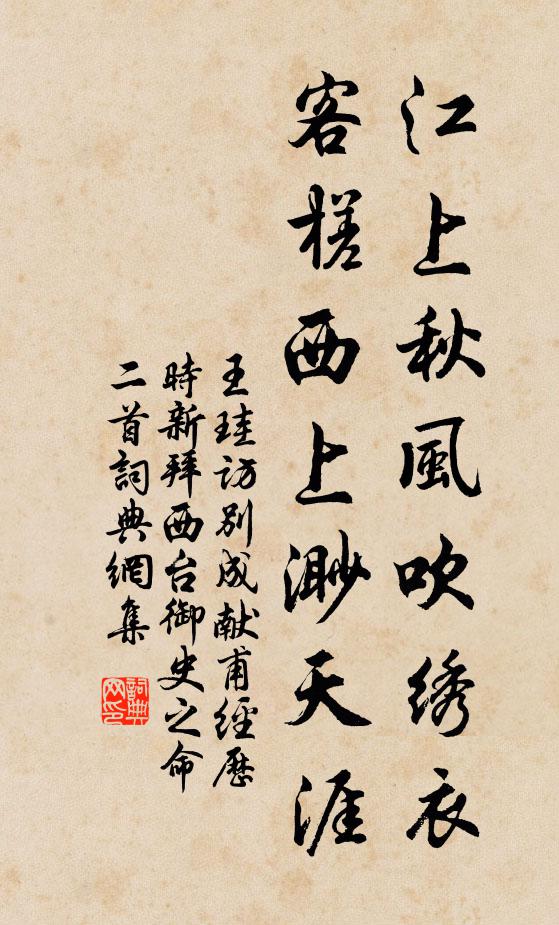 江上秋風吹绣衣
客槎西上渺天涯
王珪訪别成献甫經歷
時新拜西台御史之命
二首詞典網集
詞典
网印